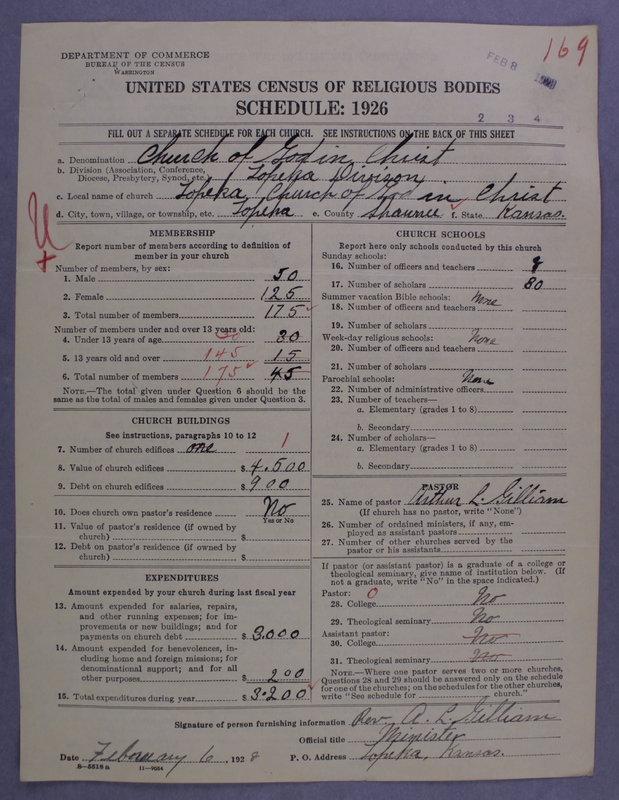 169
FEB 8 1928
DEPARTMENT OF COMMERCE
BUREAU OF THE CENSUS
WASHINGTON
UNITED STATES CENSUS OF RELIGIOUS BODIES
SCHEDULE: 1926
2 3 4
FILL OUT A SEPARATE SCHEDULE FOR EACH CHURCH. SEE INSTRUCTIONS ON THE BACK OF THIS SHEET
a. Denomination Church of God in Christ
b. Division (Association, Conference, Diocese, Presbytery, Synod, etc.) Topeka Division
c. Local name of church Topeka, Church of God in Christ
d. City, town, village, or township, etc. Topeka e. County Shawnee f. State Kansas.
MEMBERSHIP
Report number of members according to definition of
member in your church
Number of members, by sex:
1. Male 50
2. Female 125
3. Total number of members 175
Number of members under and over 13 years old:
4. Under 13 years of age 30 30
5. 13 years old and over 145 15
6. Total number of members 175 45
NOTE.—The total given under Question 6 should be the
same as the total of males and females given under Question 3.
CHURCH BUILDINGS
See instructions, paragraphs 10 to 12
7. Number of church edifices one 1
8. Value of church edifices $ 4,500
9. Debt on church edifices $ 900
10. Does church own pastor's residence No
Yes or No
11. Value of pastor's residence (if owned by
church) $
12. Debt on pastor's residence (if owned by
church) $
EXPENDITURES
Amount expended by church during last fiscal year
13. Amount expended for salaries, repairs,
and other running expenses; for im-
provements or new buildings; and for
payments on church debt $ 3,000
14. Amount expended for benevolences, in-
cluding home and foreign missions; for
denominational support; and for all
other purposes $ 200
15. Total expenditures during year $ 3,200
CHURCH SCHOOLS
Report here only schools conducted by this church
Sunday schools:
16. Number of officers and teachers 8
17. Number of scholars 80
Summer vacation Bible schools: None
18. Number of officers and teachers
19. Number of scholars
Week-day religious schools: None
20. Number of officers and teachers
21. Number of scholars
Parochial schools: None
22. Number of administrative officers
23. Number of teachers—
a. Elementary (grades 1 to 8)
b. Secondary
24. Number of scholars—
a. Elementary (grades 1 to 8)
b. Secondary
PASTOR
25. Name of pastor Arthur L. Gilliam
(If church has no pastor, write "None")
26. Number of ordained ministers, if any, em-
ployed as assistant pastors
27. Number of other churches served by the
pastor or his assistants
If pastor (or assistant pastor) is a graduate of a college or
theological seminary, give name of institution below. (If
not a graduate, write "No" in the space indicated.)
Pastor: 0
28. College No
29. Theological seminary No
Assistant pastor:
30. College No
31. Theological seminary No
NOTE.—Where one pastor serves two or more churches,
Questions 28 and 29 should be answered only on the schedule
for one of the churches; on the schedules for the other churches,
write "See schedule for church."
Signature of person furnishing information Rev. A. L. Gilliam
Official title Minister
Date February 6, 1928 P. O. Address Topeka, Kansas.
8—5518a 11—9584